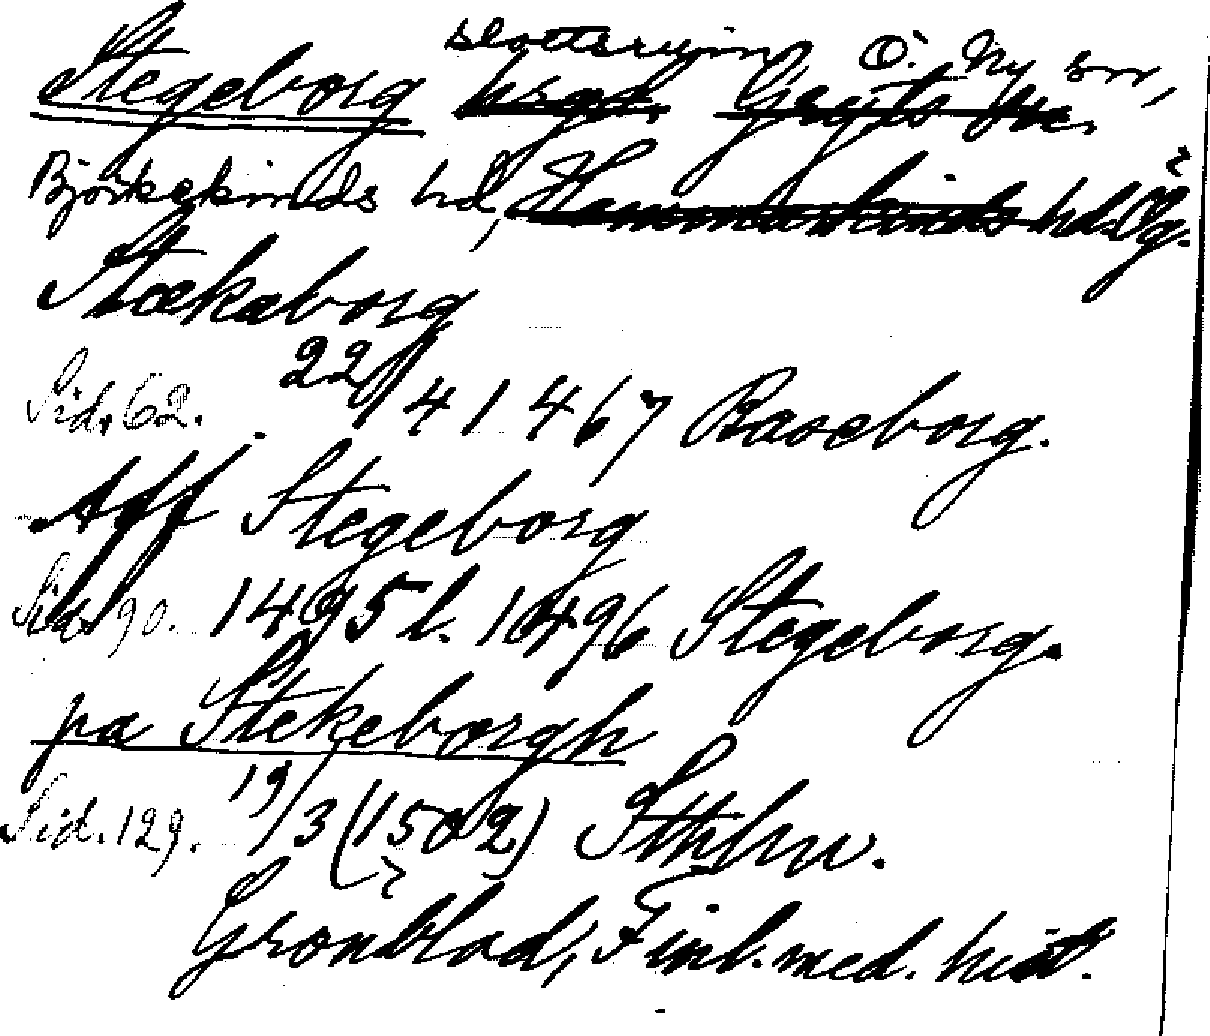 Stegeborg slottsruin Ö. Ny srr,
Björkekinds hd, Hammarkinds hd. Ög.
Stækaborg
Sid. 62. 22/4 1467 Raseborg.
Aff Stegeborg
Sid. 90. 1495 l. 1496 Stegeborg.
pa Stekeborgh
Sid. 129. 19/3 (1502) Sthlm.
Grönblad, Finl. med. hist.